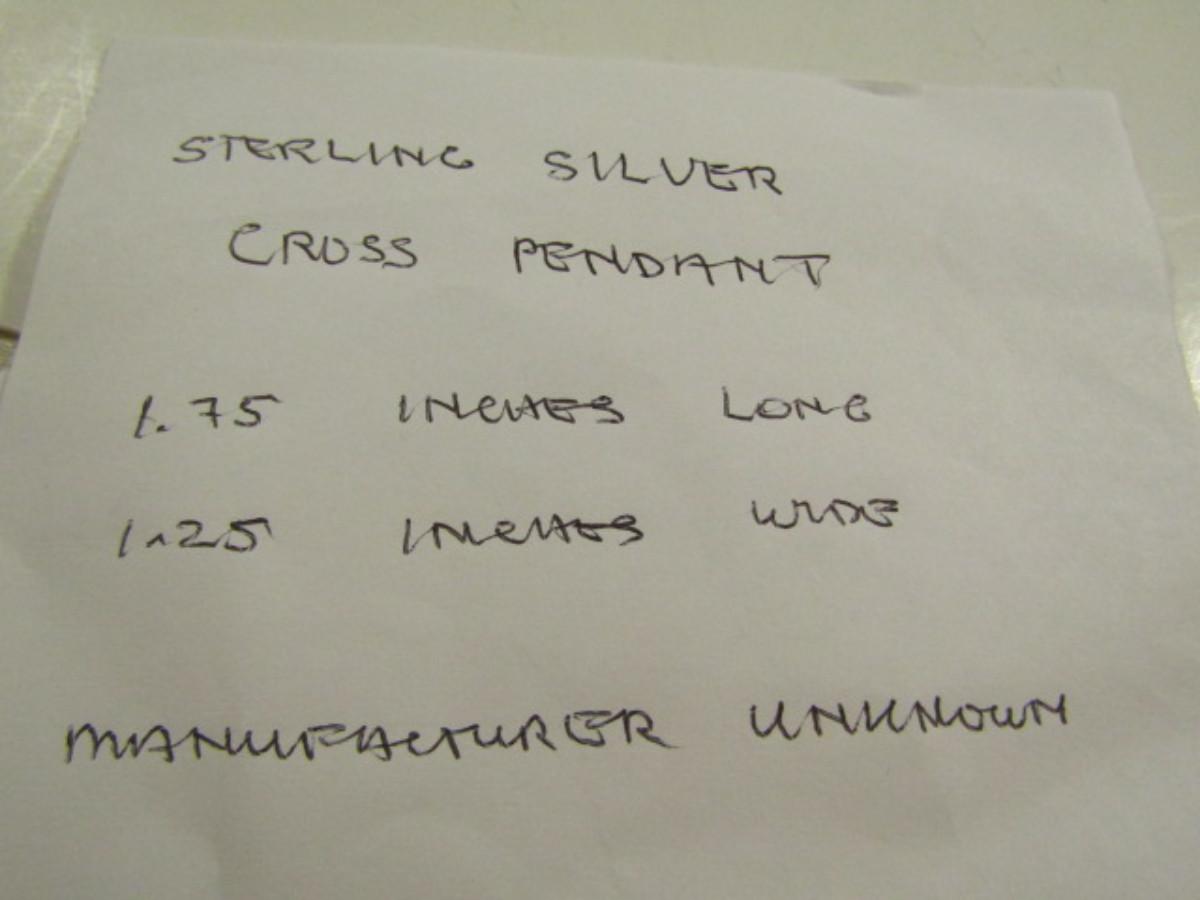 STERLING SILVER
CROSS PENDANT
1.75 INCHES LONG
1.25 INCHES WIDE
MANUFACTURER UNKNOWN